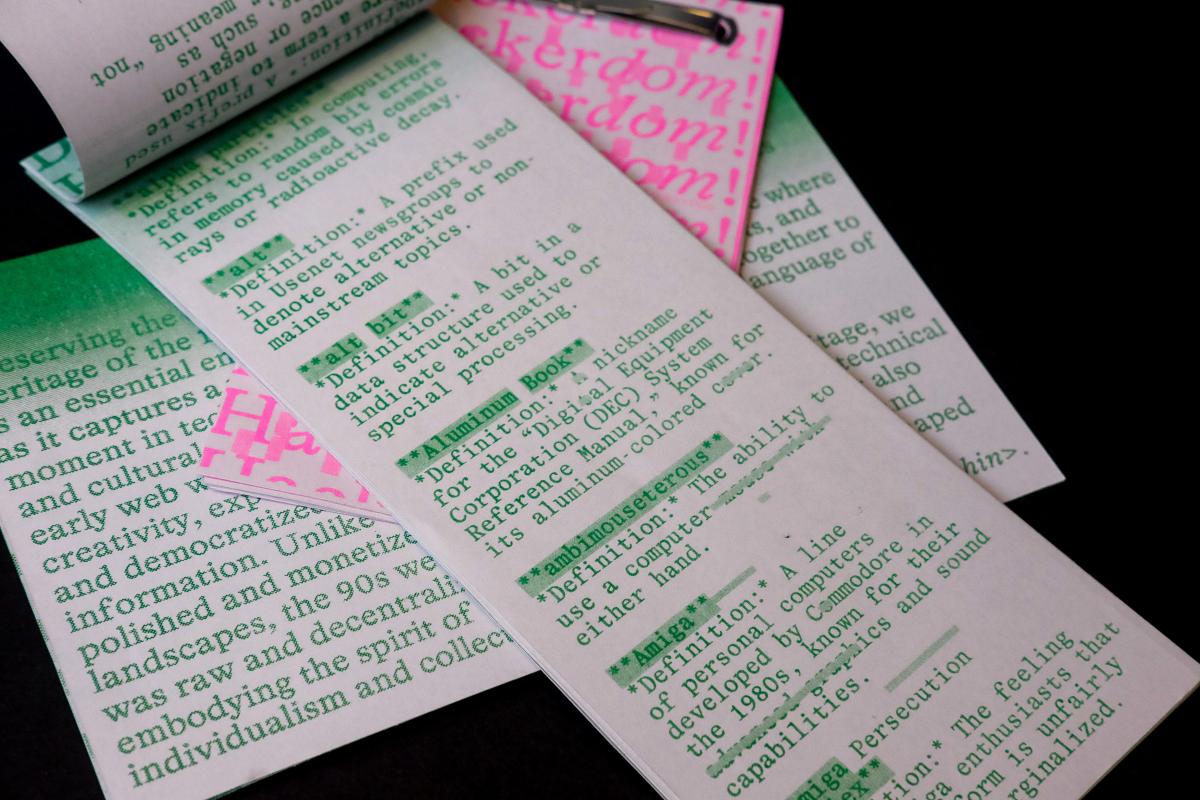 "not
meaning
such as
or negation
ence
a term
to indicate
A prefix used
ckerdom!
ckerdom!
erdom!
dom!
om!
**alpha particles**
*Definition:* In computing,
refers to random bit errors
in memory caused by cosmic
rays or radioactive decay.
**alt**
*Definition:* A prefix used
in Usenet newsgroups to
denote alternative or non-
mainstream topics.
**alt bit**
*Definition:* A bit in a
data structure used to
indicate alternative or
special processing.
**Aluminum Book**
*Definition:* A nickname
for the "Digital Equipment
Corporation (DEC) System
Reference Manual," known for
its aluminum-colored cover.
**ambimouseterous**
*Definition:* The ability to
use a computer mouse with
either hand.
**Amiga**
*Definition:* A line
of personal computers
developed by Commodore in
the 1980s, known for their
advanced graphics and sound
capabilities.
miga Persecution
tion:* The feeling
ga enthusiasts that
form is unfairly
rginalized.
eserving the
eritage of the
s an essential
as it captures a
moment in tec
and cultural
early web w
creativity, exp
and democratize
information. Unlike
polished and monetize
landscapes, the 90s we
was raw and decentrali
embodying the spirit of
individualism and collect
Ha
where
s, and
ogether to
anguage of
tage, we
technical
also
nd
aped
hin>.